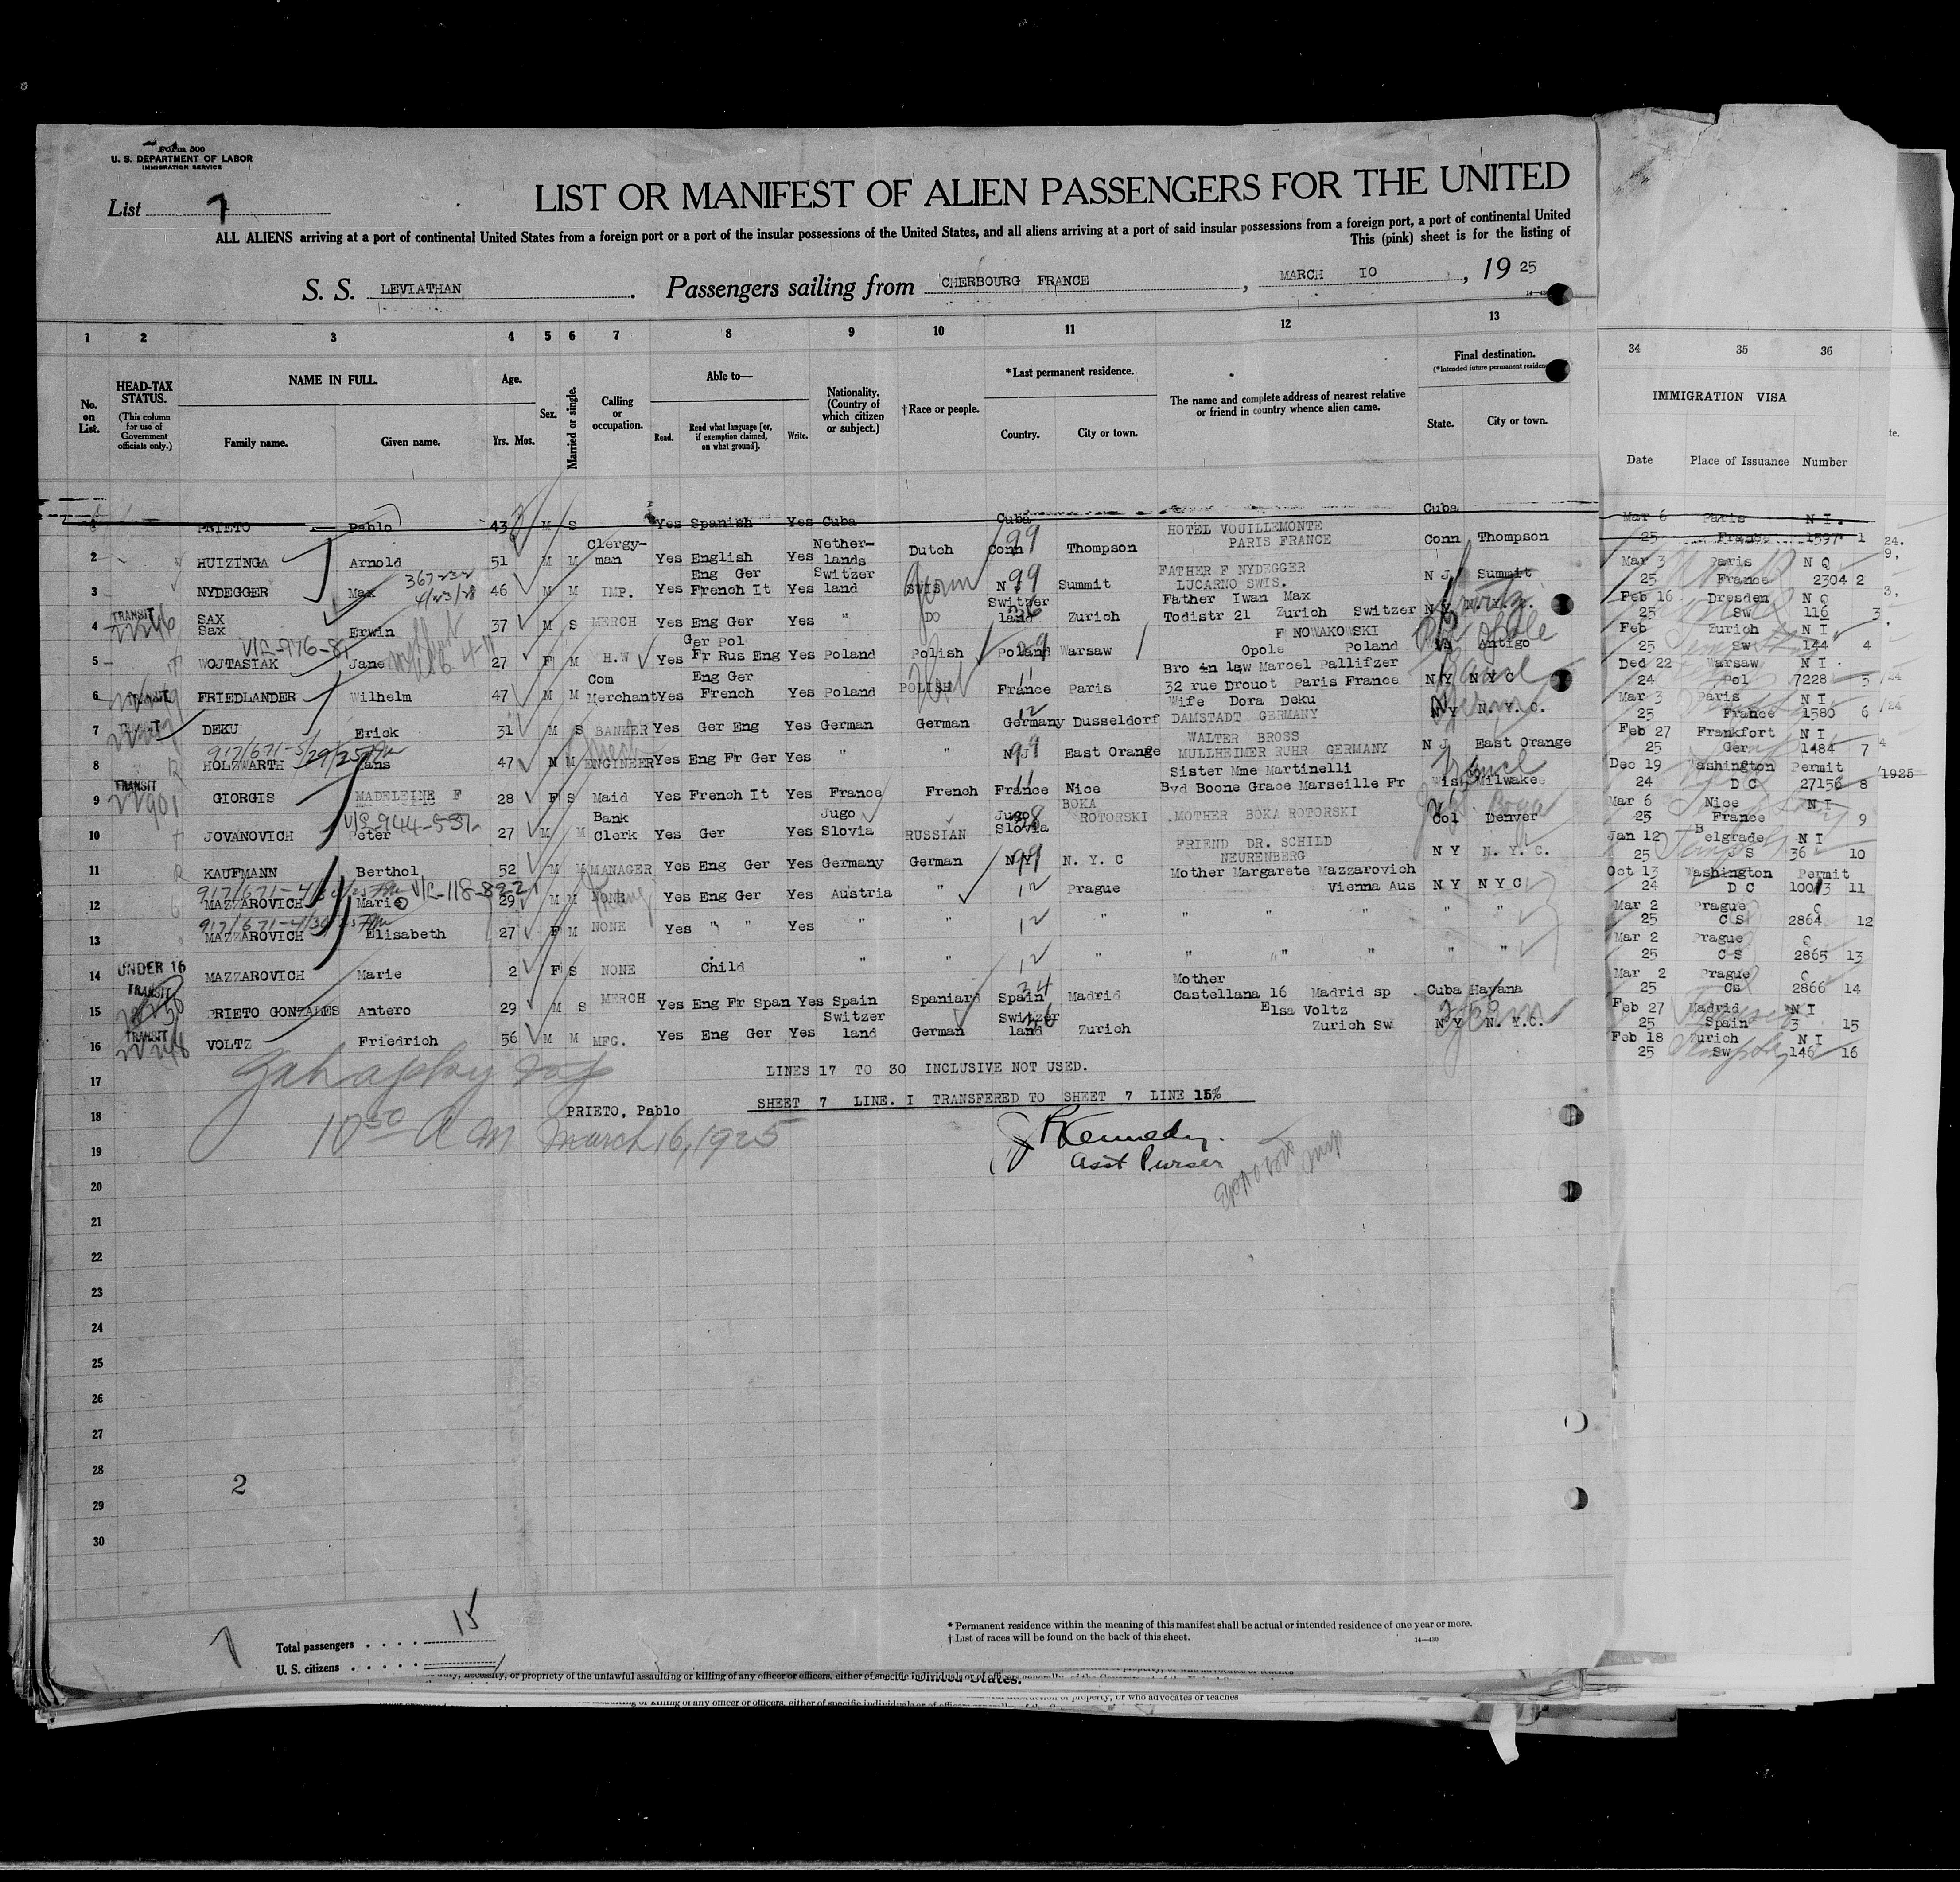 Form 500
U. S. DEPARTMENT OF LABOR
IMMIGRATION SERVICE
List 7
LIST OR MANIFEST OF ALIEN PASSENGERS FOR THE UNITED
ALL ALIENS arriving at a port of continental United States from a foreign port or a port of the insular possessions of the United States, and all aliens arriving at a port of said insular possessions from a foreign port, a port of continental United
This (pink) sheet is for the listing of
S. S. LEVIATHAN. Passengers sailing from CHERBOURG FRANCE, MARCH 10, 1925
1 2 3 4 5 6 7 8 9 10 11 12 13 34 35 36
No. on List.
HEAD-TAX STATUS.
(This column for use of Government officials only.)
NAME IN FULL.
Family name. Given name.
Age.
Yrs. Mos.
Sex.
Married or single.
Calling or occupation.
Able to—
Read. Read what language [or, if exemption claimed, on what ground]. Write.
Nationality. (Country of which citizen or subject.)
†Race or people.
*Last permanent residence.
Country. City or town.
The name and complete address of nearest relative or friend in country whence alien came.
Final destination.
(*Intended future permanent residence)
State. City or town.
IMMIGRATION VISA
Date Place of Issuance Number
1 PRIETO Pablo 43 M S Yes Spanish Yes Cuba Cuba Cuba Mar 6 25 Paris France N I. 1597 1
2 HUIZINGA Arnold 51 M M Clergy-man Yes English Yes Nether-lands Dutch Conn 99 Thompson HOTEL VOUILLEMONTE PARIS FRANCE Conn Thompson Mar 3 25 Paris France N Q 2304 2
3 NYDEGGER Max 46 M M IMP. Yes Eng Ger French It Yes Switzer land SWIS N J 99 Summit FATHER F NYDEGGER LUCARNO SWIS. N J Summit Feb 16 25 Dresden Sw N Q 116 3
4 TRANSIT SAX Sax Erwin 37 M S MERCH Yes Eng Ger Yes " DO Switzer land Zurich Father Iwan Max Todistr 21 Zurich Switzer N Y N.Y.C. Feb 25 Zurich Sw N I 144 4
5 WOJTASIAK Jane 27 F M H.W Yes Ger Pol Fr Rus Eng Yes Poland Polish Poland Warsaw F NOWAKOWSKI Opole Poland Antigo Dec 22 24 Warsaw Pol N I 7228 5
6 FRIEDLANDER Wilhelm 47 M M Com Merchant Yes Eng Ger French Yes Poland POLISH France 11 Paris Bro in law Marcel Pallifzer 32 rue Drouot Paris France N Y N Y C Mar 3 25 Paris France N I 1580 6
7 DEKU Erick 31 M S BANKER Yes Ger Eng Yes German German Germany 12 Dusseldorf Wife Dora Deku DAMSTADT GERMANY N Y N.Y.C. Feb 27 25 Frankfort Ger N I 1484 7
8 HOLZWARTH Hans 47 M M ENGYNEER Yes Eng Fr Ger Yes " " N J 99 East Orange WALTER BROSS MULLHEIMER RUHR GERMANY N J East Orange Dec 19 24 Washington D C Permit 27156 8
9 TRANSIT GIORGIS MADELEINE F 28 F S Maid Yes French It Yes France French France 11 Nice Sister Mme Martinelli Bvd Boone Grace Marseille Fr Wis Milwakee Mar 6 25 Nice France N I 9
10 JOVANOVICH Peter 27 M M Bank Clerk Yes Ger Yes Jugo Slovia RUSSIAN Jugo Slovia BOKA ROTORSKI MOTHER BOKA ROTORSKI Col Denver Jan 12 25 Belgrade S N I 36 10
11 KAUFMANN Berthol 52 M M MANAGER Yes Eng Ger Yes Germany German N Y 99 N. Y. C FRIEND DR. SCHILD NEURENBERG N Y N. Y. C. Oct 13 24 Washington D C Permit 10013 11
12 MAZZAROVICH Mario 29 M M NONE Yes Eng Ger Yes Austria " 12 Prague Mother Margarete Mazzarovich Vienna Aus N Y N Y C Mar 2 25 Prague C S Q 2864 12
13 MAZZAROVICH Elisabeth 27 F M NONE Yes " " Yes " " 12 " " " " " " Mar 2 25 Prague C S Q 2865 13
14 UNDER 16 MAZZAROVICH Marie 2 F S NONE Child " " 12 " " " " " " Mar 2 25 Prague Cs Q 2866 14
15 TRANSIT PRIETO GONZALES Antero 29 M S MERCH Yes Eng Fr Span Yes Spain Spaniard Spain 34 Madrid Mother Castellana 16 Madrid sp Cuba Havana Feb 27 25 Madrid Spain N I 3 15
16 TRANSIT VOLTZ Friedrich 56 M M MFG. Yes Eng Ger Yes Switzer land German Switzer land 36 Zurich Elsa Voltz Zurich Sw N Y N. Y.C. Feb 18 25 Zurich Sw N I 146 16
17 LINES 17 TO 30 INCLUSIVE NOT USED.
18 PRIETO, Pablo SHEET 7 LINE. I TRANSFERED TO SHEET 7 LINE 15
10 50 A M March 16, 1925
19 Kennedy.
Asst Purser
20
21
22
23
24
25
26
27
28
2
29
30
7
Total passengers 15
U. S. citizens
* Permanent residence within the meaning of this manifest shall be actual or intended residence of one year or more.
† List of races will be found on the back of this sheet.
14—430
duty, necessity, or propriety of the unlawful assaulting or killing of any officer or officers, either of specific individuals or of officers generally, of the
United States.